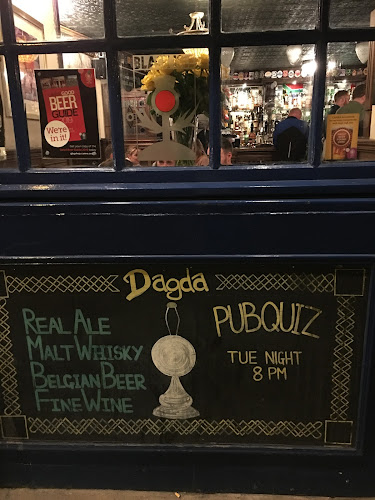 GOOD
BEER
GUIDE
We're
in it!
Dagda
REAL ALE
MALT WHISKY
BELGIAN BEER
FINE WINE
PUBQUIZ
TUE NIGHT
8 PM